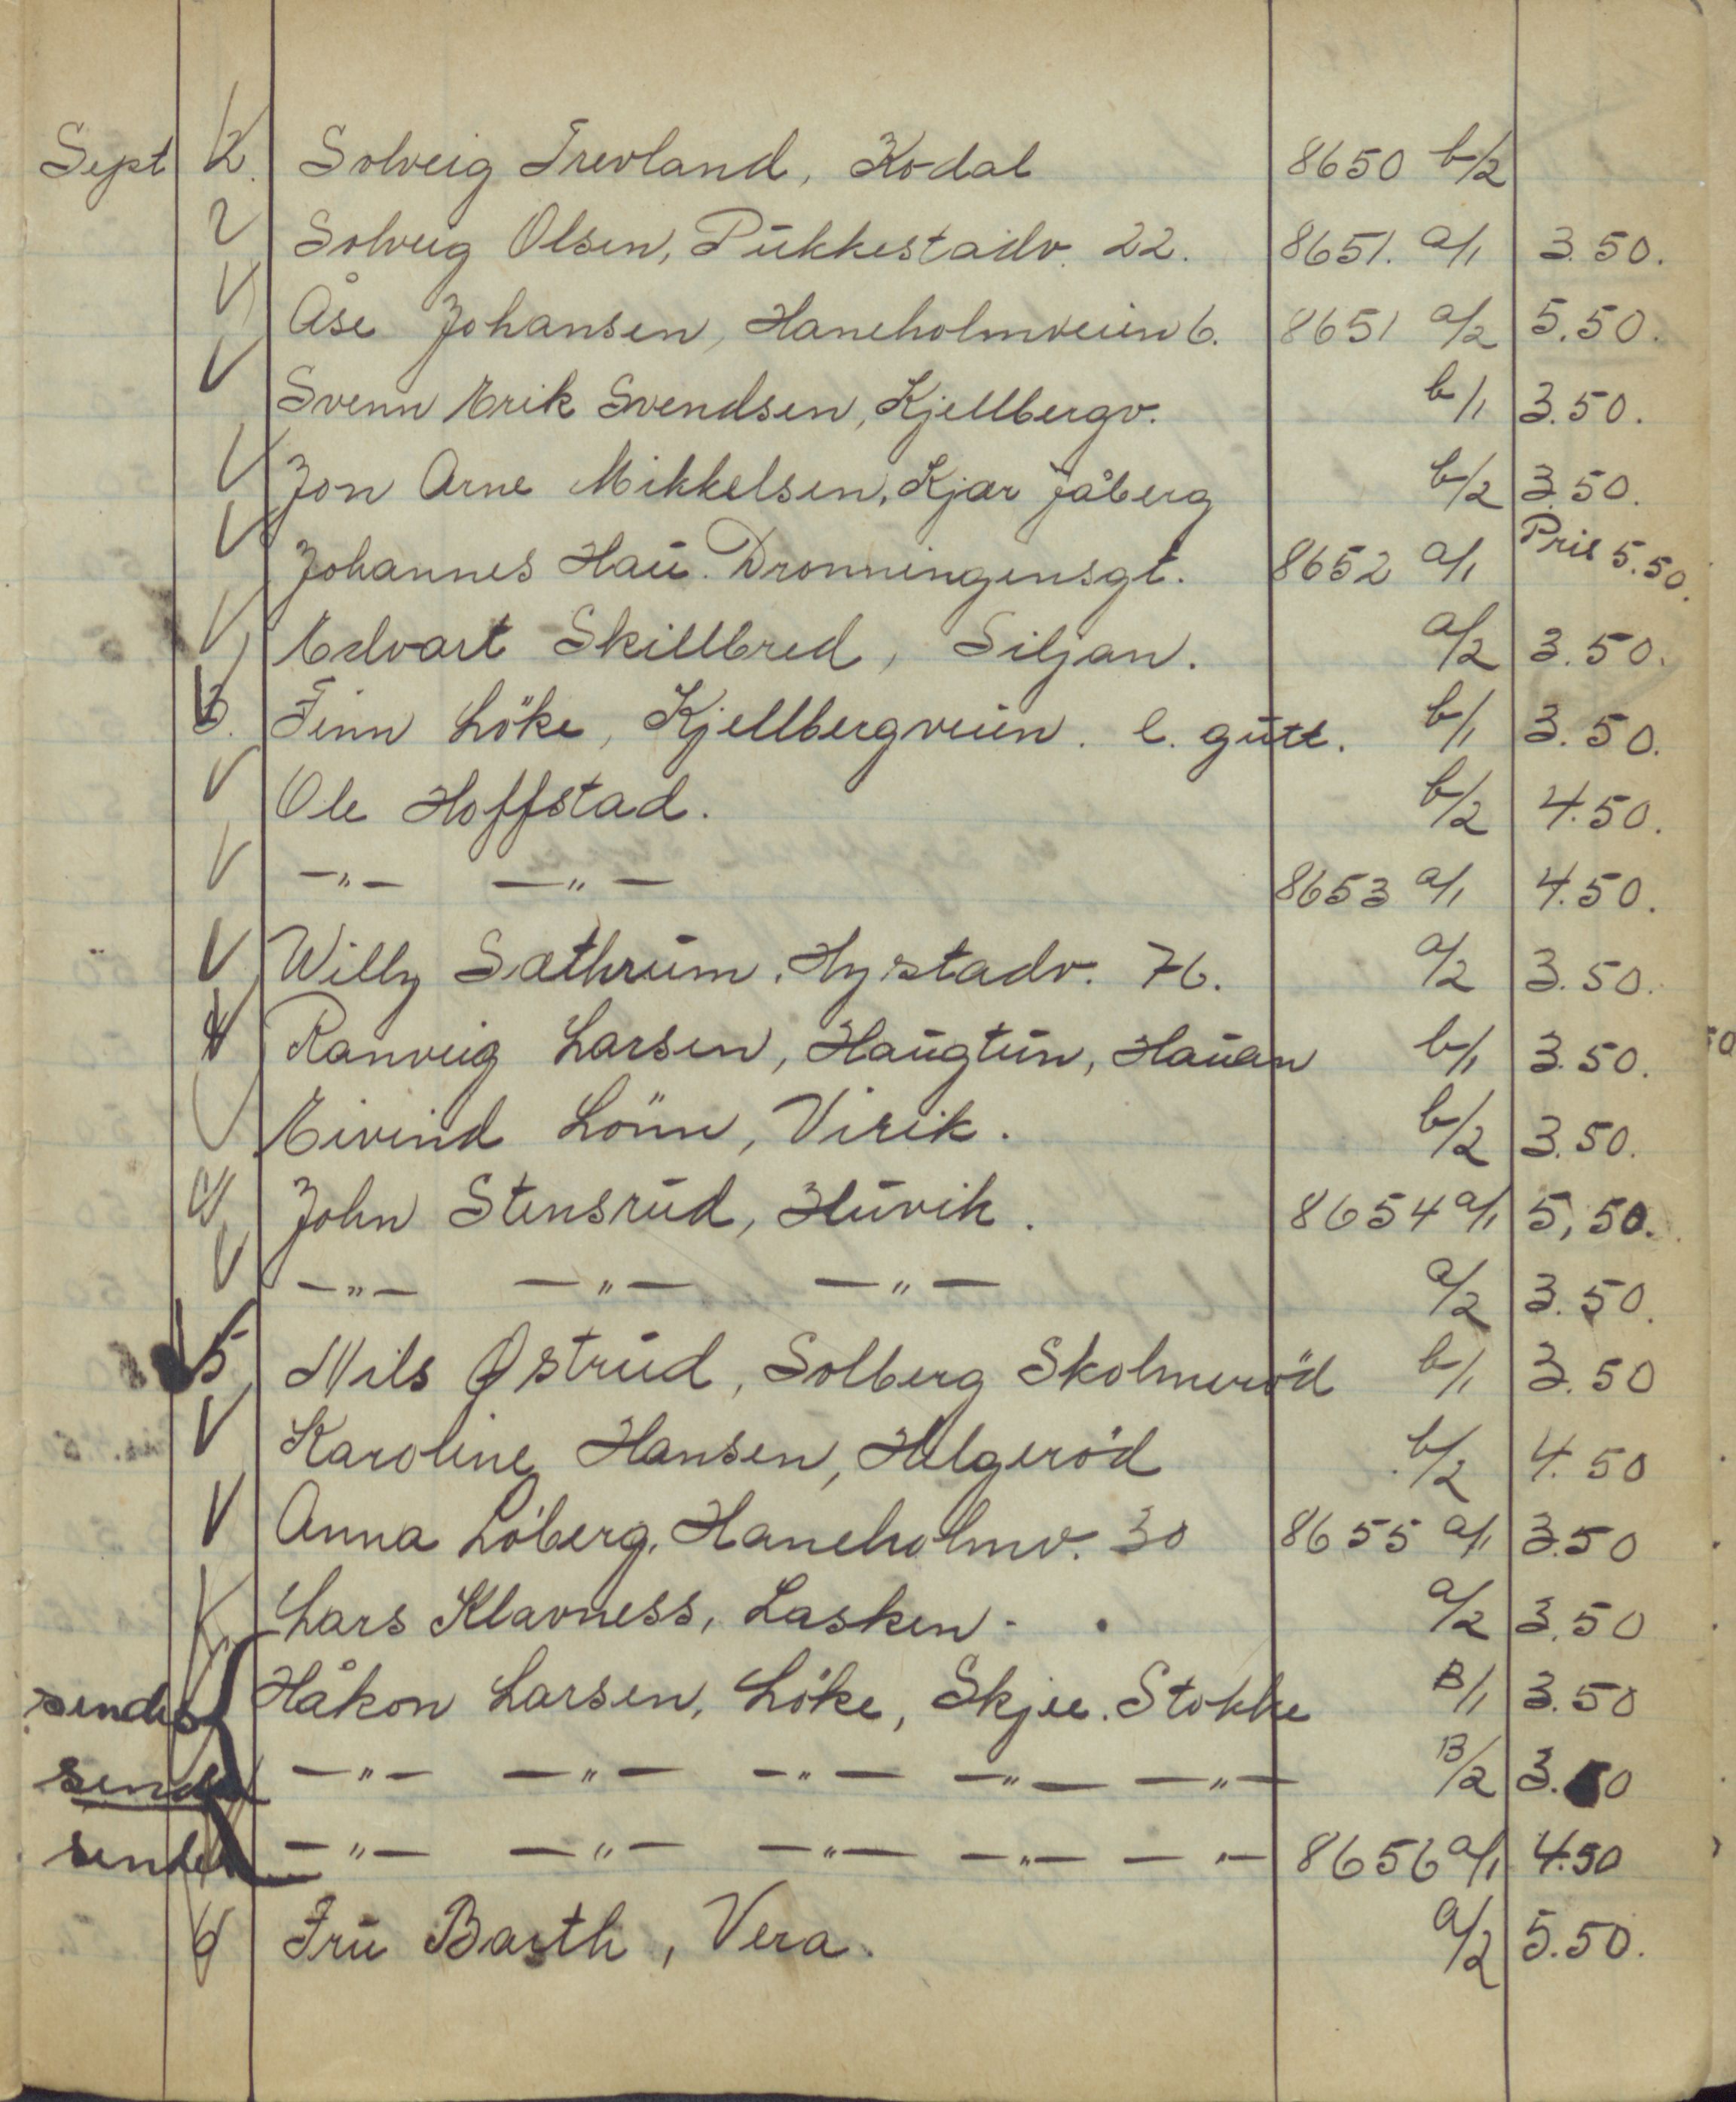 Sept 2. Solveig Trevland, Kodal 8650 b/2
2 Solveig Olsen, Pukkestadv. 22. 8651. a/1 3.50.
V Åse Johansen, Haneholmveien 6. 8651 a/2 5.50.
V Svenn Erik Svendsen, Kjellbergv. b/1 3.50.
V Jon Arne Mikkelsen, Kjær Jåberg b/2 3.50.
V Johannes Hau. Dronningensgt. 8652 a/1 Pris 5.50.
V Edvart Skillbred, Siljan. a/2 3.50.
3. Finn Löke, Kjellbergveien. l. gutt. b/1 3.50.
V Ole Hoffstad. b/2 4.50.
V —„— —„— 8653 a/1 4.50.
V Willy Sæthrum. Hystadv. 76. a/2 3.50.
4 Ranveig Larsen, Haugtun, Hauan b/1 3.50.
V Eivind Lönn, Virik. b/2 3.50.
4 John Stensrud, Huvik. 8654 a/1 5,50.
V —„— —„— —„— a/2 3.50.
5 Nils Østrud, Solberg Skolmeröd b/1 3.50
V Karoline Hansen, Helgeröd b/2 4.50
V Anna Löberg, Haneholmv. 30 8655 a/1 3.50
Lars Klavness, Lasken. a/2 3.50
sendes Håkon Larsen, Löke, Skjee. Stokke B/1 3.50
sendes —„— —„— —„— —„— —„— B/2 3.50
sendes —„— —„— —„— —„— —„— 8656 a/1 4.50
6 Fru Barth, Vera. a/2 5.50.